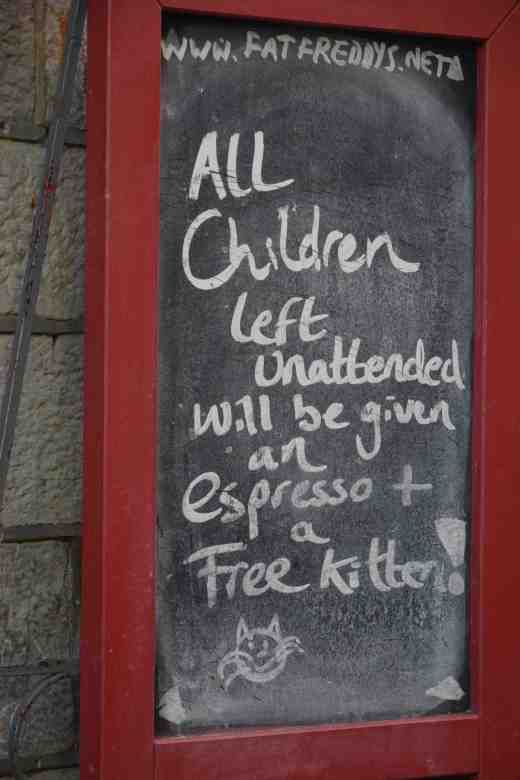 WWW.FATFREDDYS.NET
ALL
Children
left
unattended
will be given
an
espresso +
a
Free kitten!